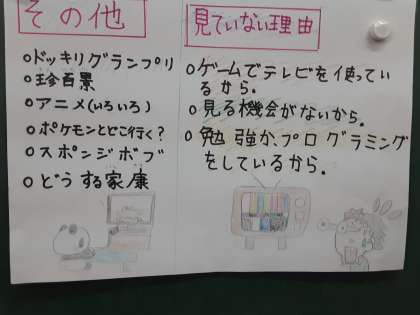 その他
○ドッキリグランプリ
○珍百景
○アニメ(いろいろ)
○ポケモンとどこ行く?
○スポンジボブ
○どうする家康
見ていない理由
○ゲームでテレビを使ってい
るから。
○見る機会がないから。
○勉強か、プログラミング
をしているから。